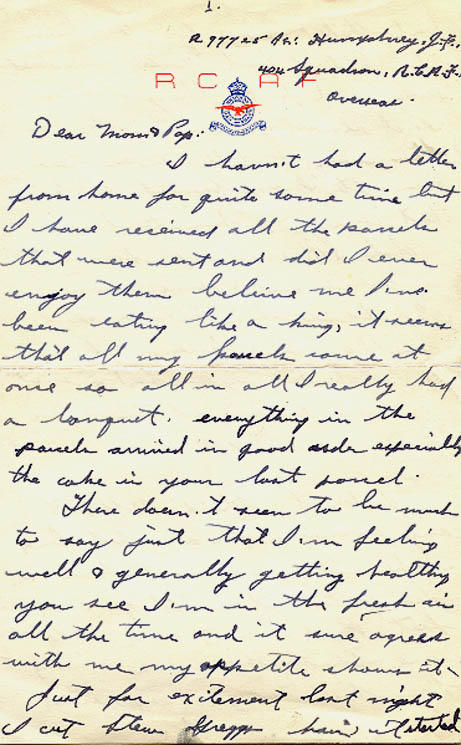 1.
R97725 Humphrey, J.F.,
404 Squadron, R.C.A.F.,
R C A F
Overseas.
Dear Mom & Pop:
I havn't had a letter
from home for quite some time but
I have received all the parcels
that were sent and did I ever
enjoy them believe me I've
been eating like a king, it seems
that all my parcels come at
once so all in all I really had
a banquet. everything in the
parcels arrived in good order especially
the cake in your last parcel.
There doesn't seem to be much
to say just that I'm feeling
well & generally getting healthy
you see I'm in the fresh air
all the time and it sure agrees
with me my appetite shows it -
Just for excitement last night
I cut Steve hair it started